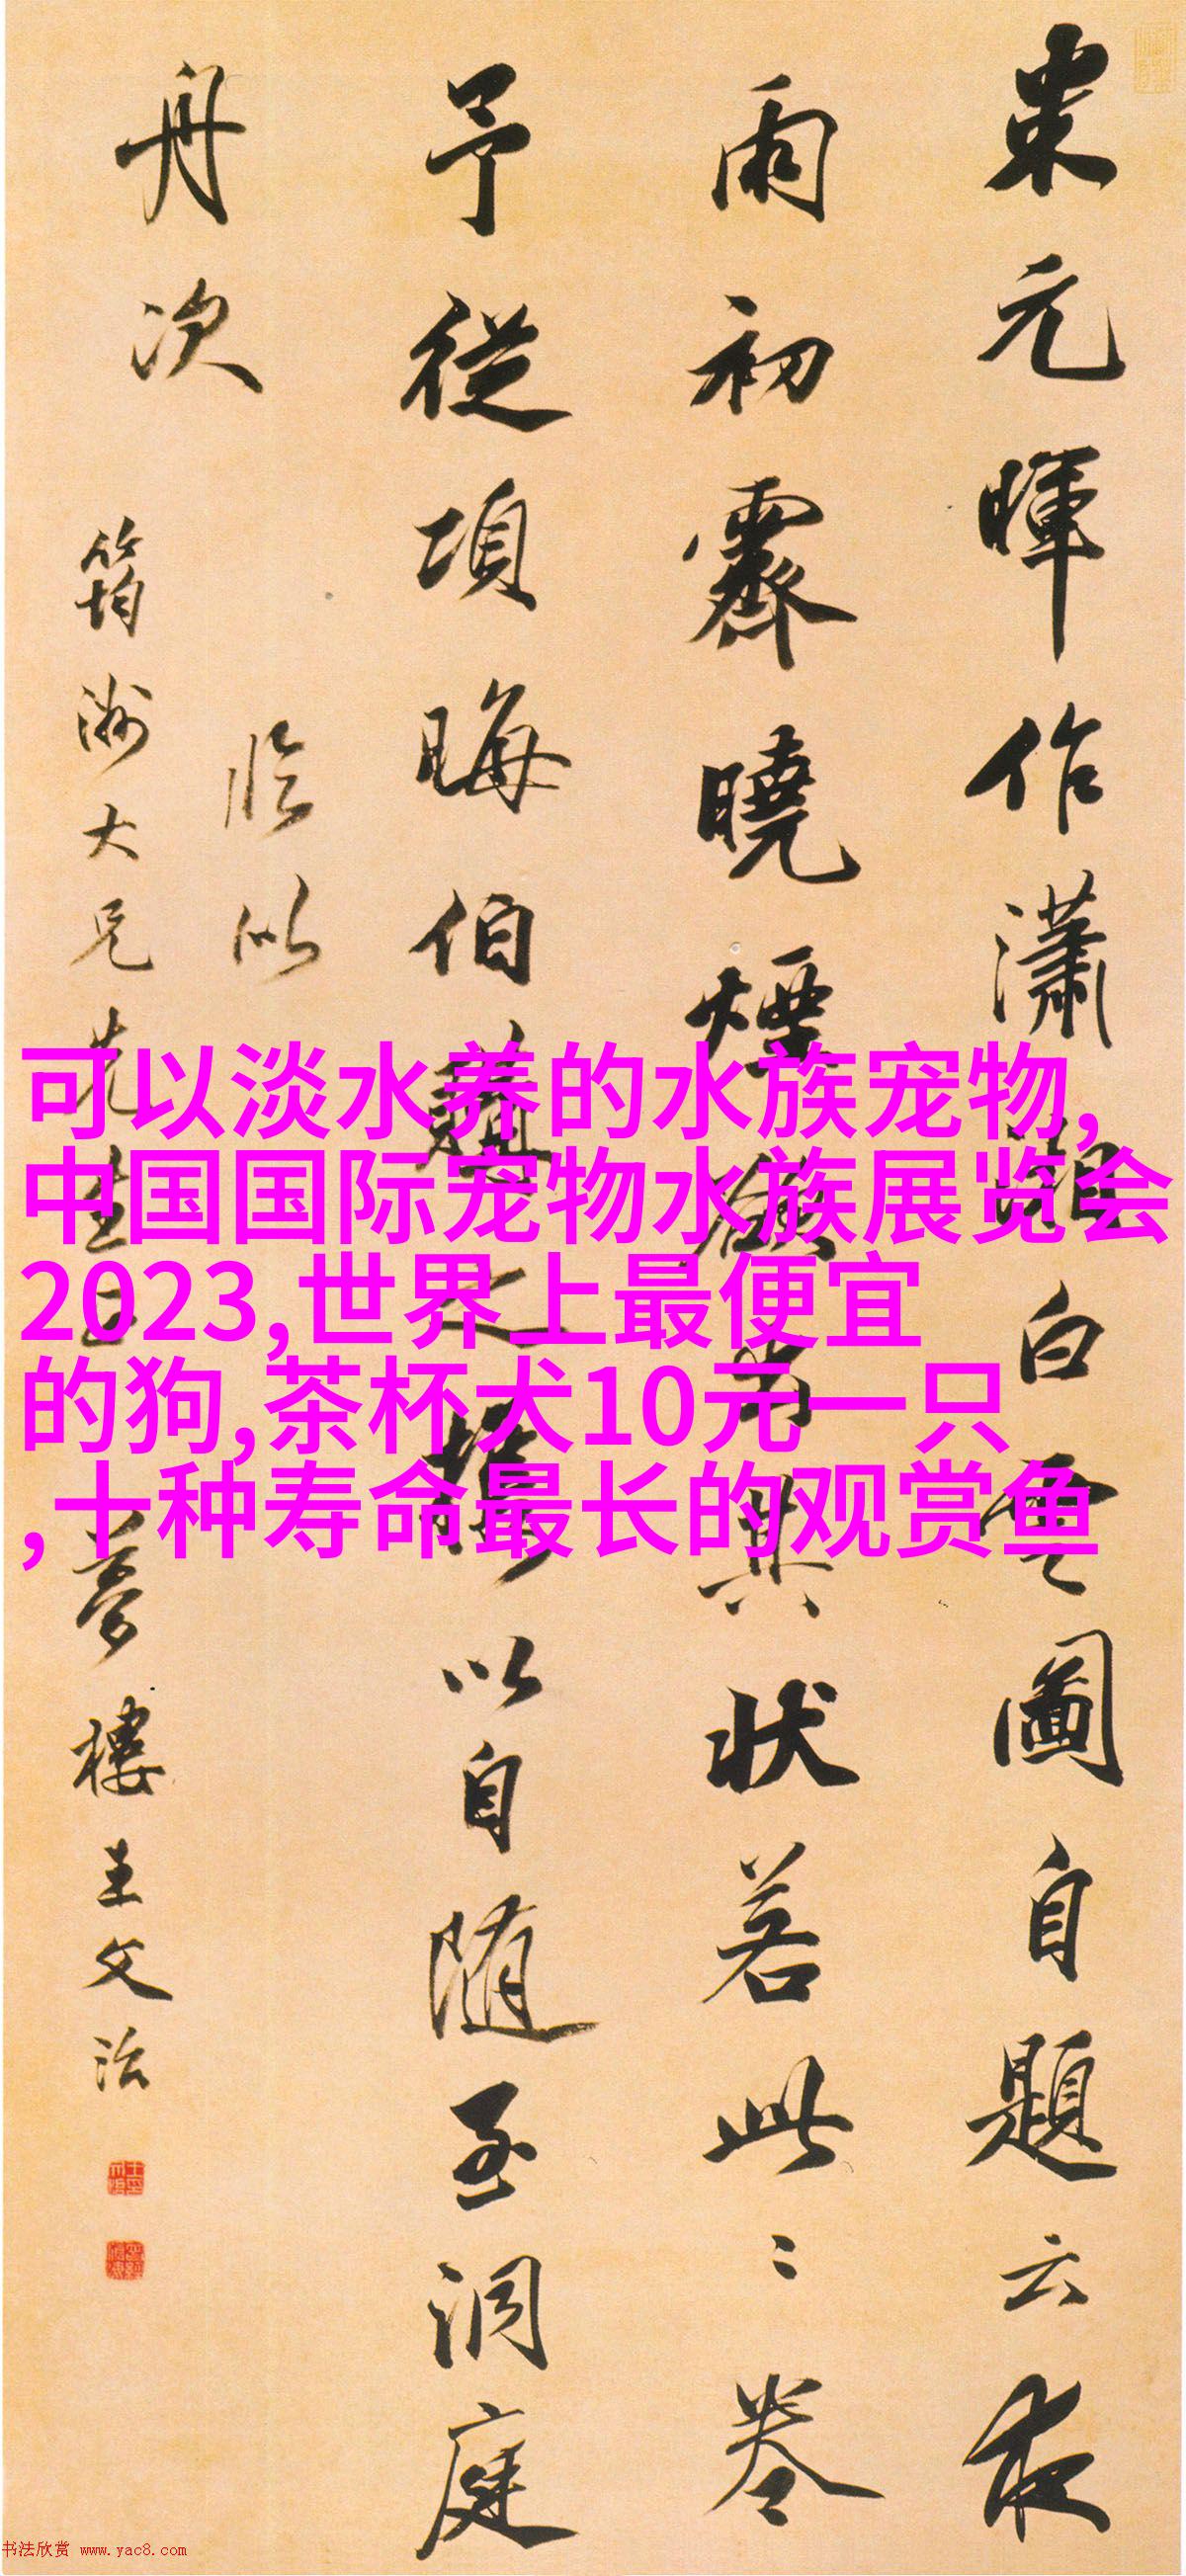 米元暉作瀟湘白雲圖自題云夜
雨初霽曉煙欲出其狀若此〻卷
予從項晦伯購之携以自随至洞庭
舟次
臨似
筠洲大兄先生正 夢樓王文治
可以淡水养的水族宠物,
中国国际宠物水族展览会
2023,世界上最便宜
的狗,茶杯犬10元一只
,十种寿命最长的观赏鱼
书法欣赏 www.yac8.com